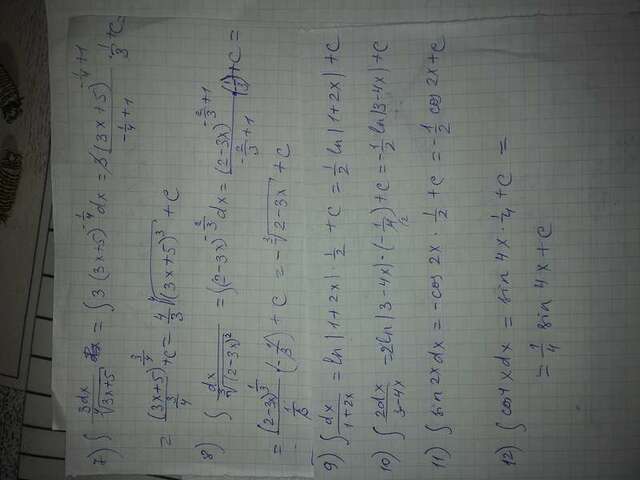 7) ∫ 3dx/⁴√(3x+5) = ∫ 3 (3x+5)^(-1/4) dx = 3 (3x+5)^(-1/4+1)/(-1/4+1) · 1/3 + C =
= (3x+5)^(3/4)/(3/4) + C = 4/3 ⁴√((3x+5)³) + C
8) ∫ dx/³√((2-3x)²) = ∫(2-3x)^(-2/3) dx = (2-3x)^(-2/3+1)/(-2/3+1) · (-1/3) + C =
= (2-3x)^(1/3)/(1/3) · (-1/3) + C = -³√(2-3x) + C
9) ∫ dx/(1+2x) = ln|1+2x| · 1/2 + C = 1/2 ln|1+2x| + C
10) ∫ 2dx/(3-4x) = 2ln|3-4x| · (-1/4) + C = -1/2 ln|3-4x| + C
11) ∫ sin 2x dx = -cos 2x · 1/2 + C = -1/2 cos 2x + C
12) ∫ cos 4x dx = sin 4x · 1/4 + C =
= 1/4 sin 4x + C